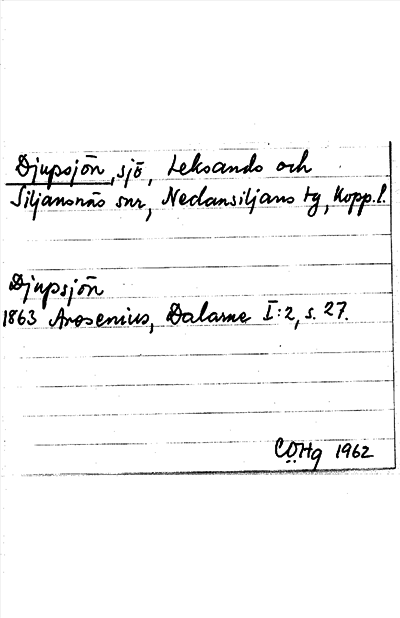 Djupsjön, sjö, Leksands och
Siljansnäs snr, Nedansiljans tg, Kopp.l.
Djupsjön
1863 Arosenius, Dalarne I:2, s. 27.
CÖHg 1962